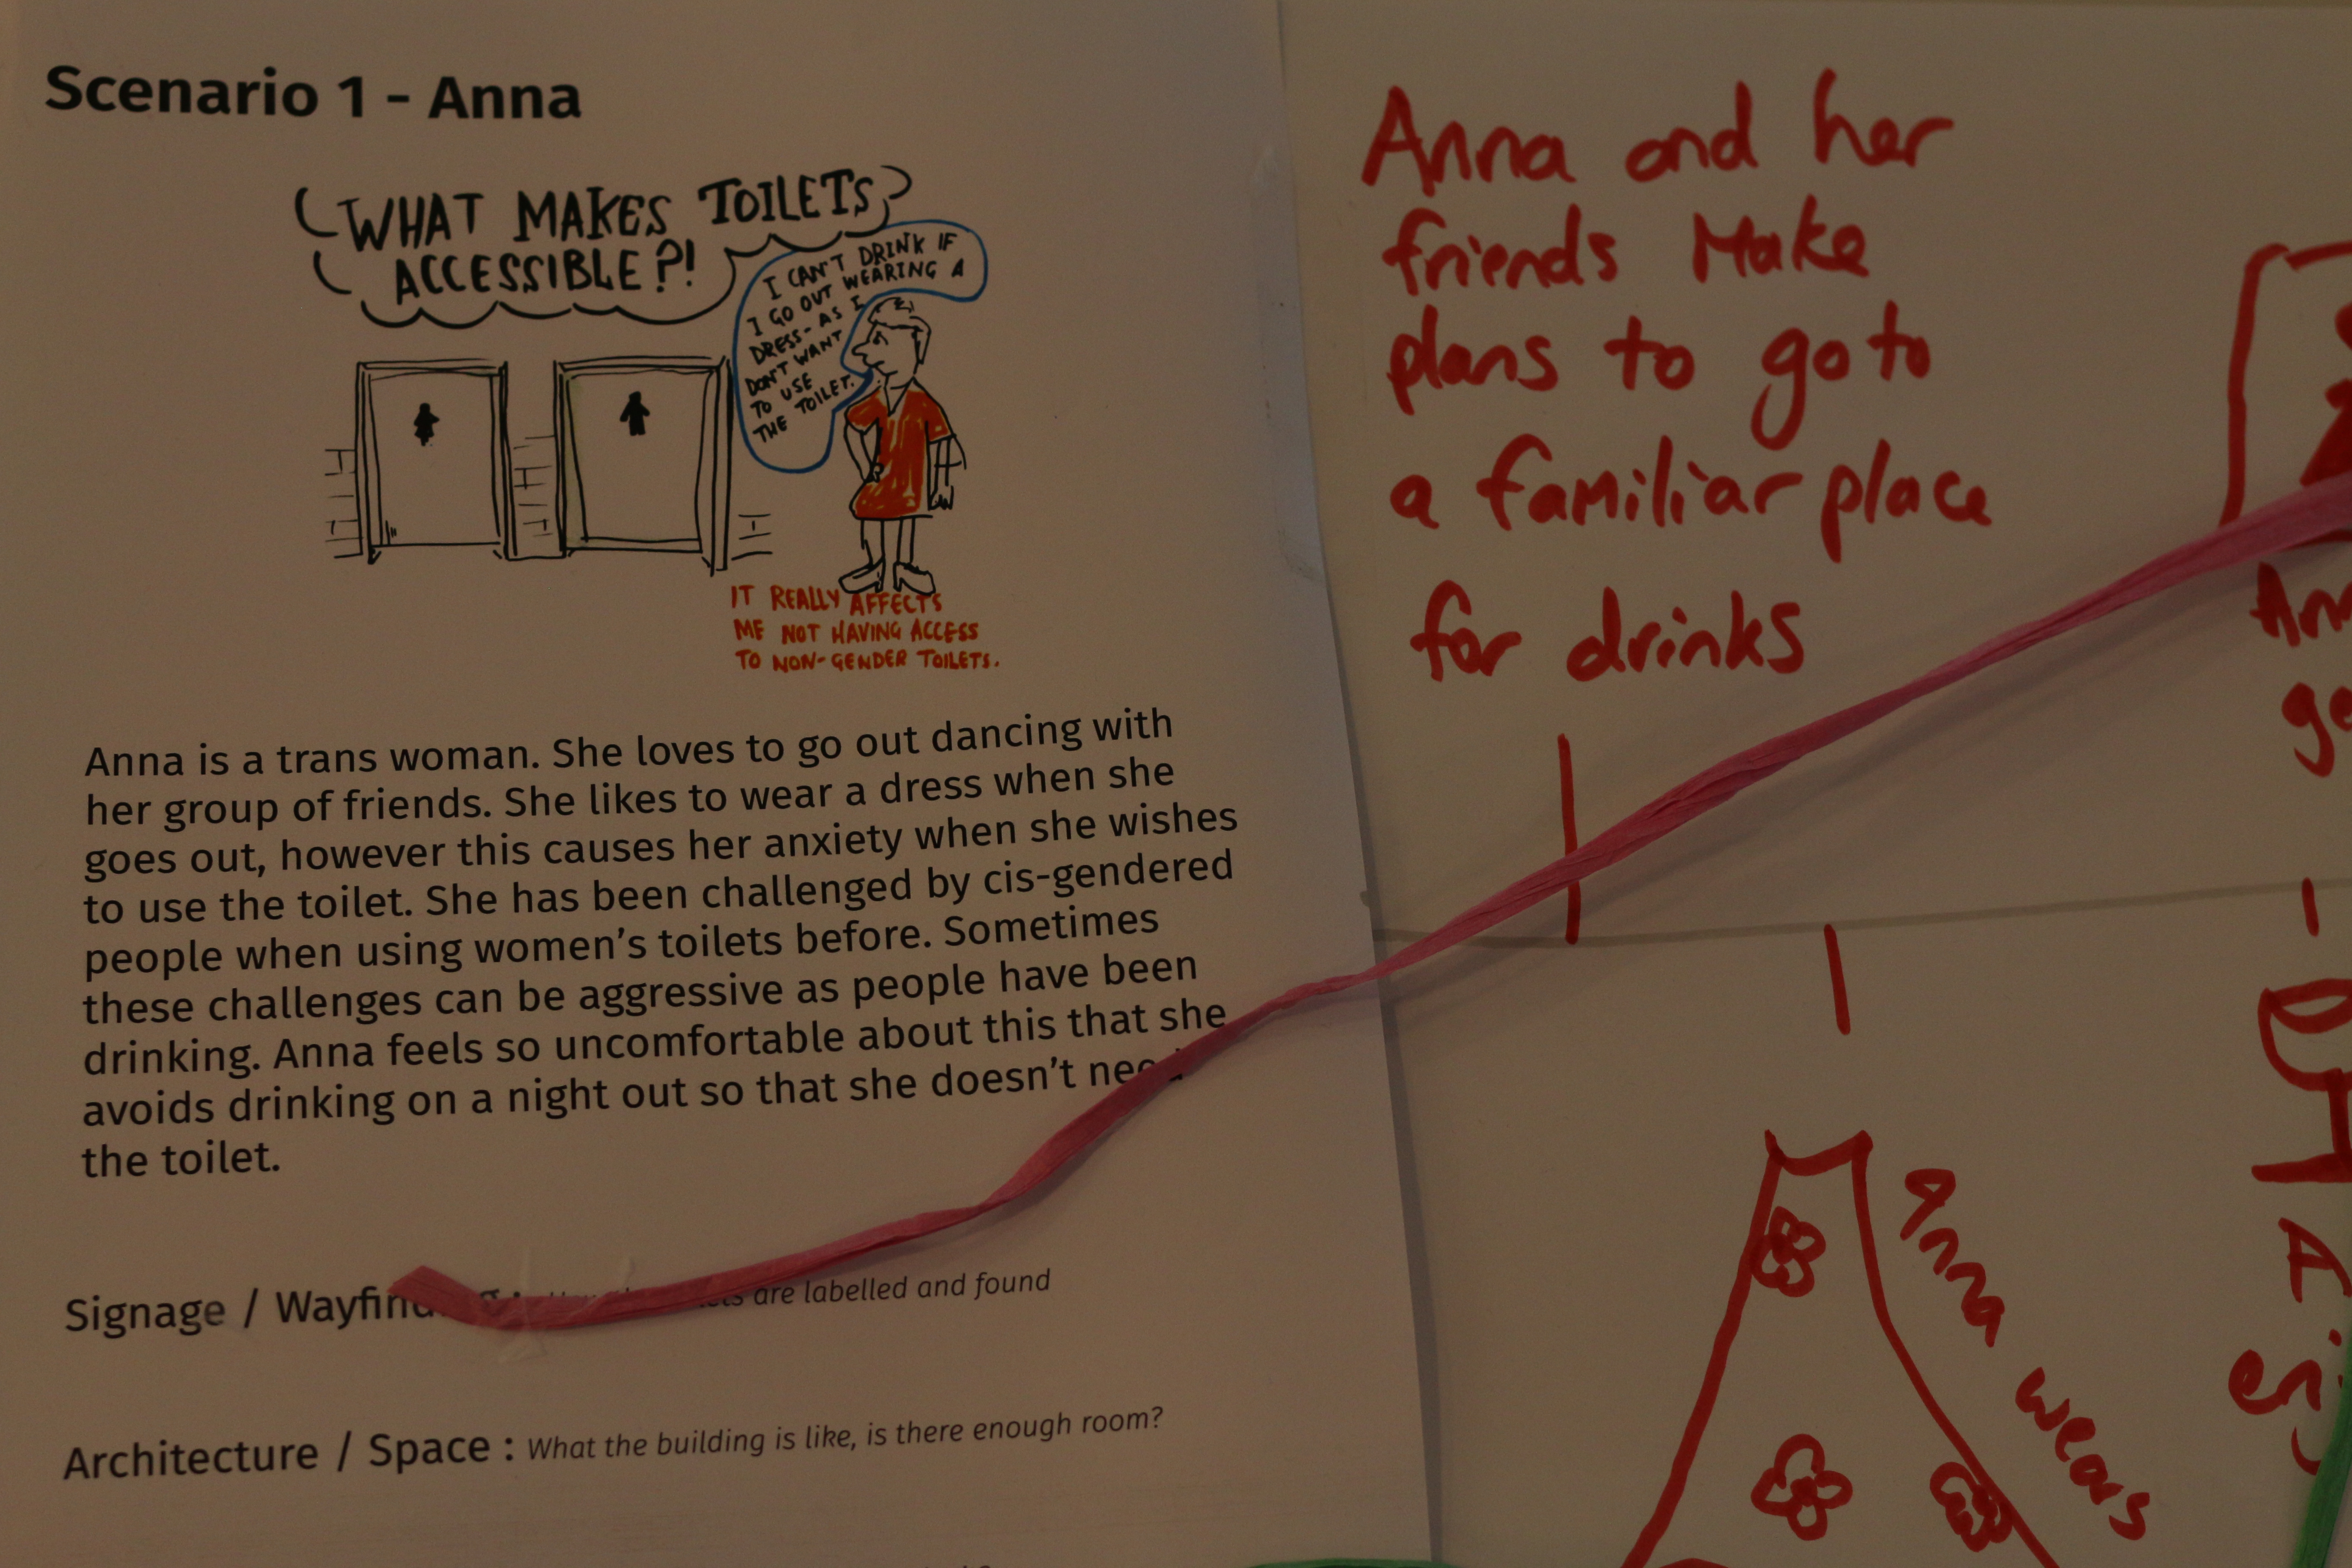 Scenario 1 - Anna
WHAT MAKES TOILETS
ACCESSIBLE?!
I CAN'T DRINK IF
I GO OUT WEARING A
DRESS - AS I
DON'T WANT
TO USE
THE TOILET.
IT REALLY AFFECTS
ME NOT HAVING ACCESS
TO NON-GENDER TOILETS.
Anna is a trans woman. She loves to go out dancing with
her group of friends. She likes to wear a dress when she
goes out, however this causes her anxiety when she wishes
to use the toilet. She has been challenged by cis-gendered
people when using women's toilets before. Sometimes
these challenges can be aggressive as people have been
drinking. Anna feels so uncomfortable about this that she
avoids drinking on a night out so that she doesn't need
the toilet.
Signage / Wayfinding : are labelled and found
Architecture / Space : What the building is like, is there enough room?
Anna and her
friends Make
plans to go to
a familiar place
for drinks
Anna wears